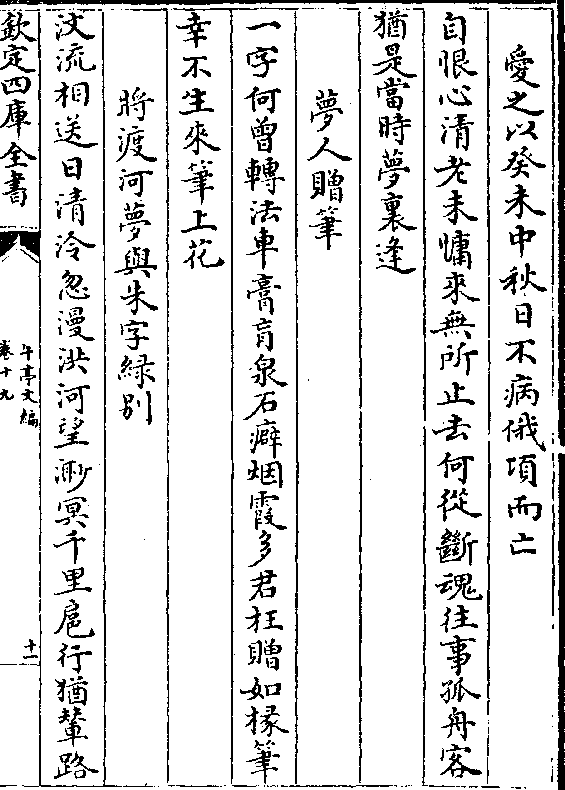 愛之以癸未中秋日不病俄頃而亡
自恨心清老未慵來無所止去何從斷魂往事孤舟客
猶是當時夢裏逢
夢人贈筆
一字何曾轉法車膏肓泉石癖烟霞多君枉贈如椽筆
幸不生來筆上花
將渡河夢與朱字緑別
汶流相送日清泠忽漫洪河望渺冥千里扈行猶輦路
欽定四庫全書
午亭文編
卷十九
十一